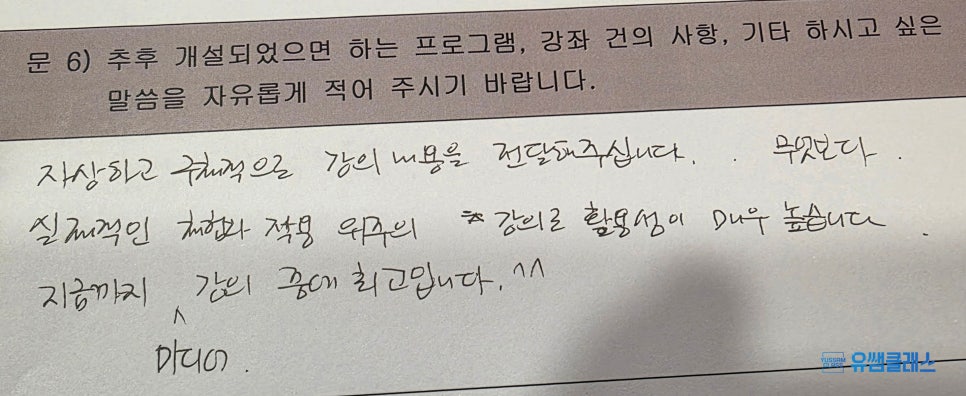 문 6) 추후 개설되었으면 하는 프로그램, 강좌 건의 사항, 기타 하시고 싶은
말씀을 자유롭게 적어 주시기 바랍니다.
자상하고 구체적으로 강의 내용을 전달해주십니다. 무엇보다
실제적인 체험과 적용 위주의 강의로 활용성이 매우 높습니다.
지금까지 강의 중에 최고입니다. ^^
YUSSAM CLASS 유쌤클래스